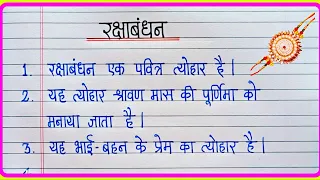 रक्षाबंधन
1. रक्षाबंधन एक पवित्र त्योहार है।
2. यह त्योहार श्रावण मास की पूर्णिमा को
मनाया जाता है।
3. यह भाई-बहन के प्रेम का त्योहार है।